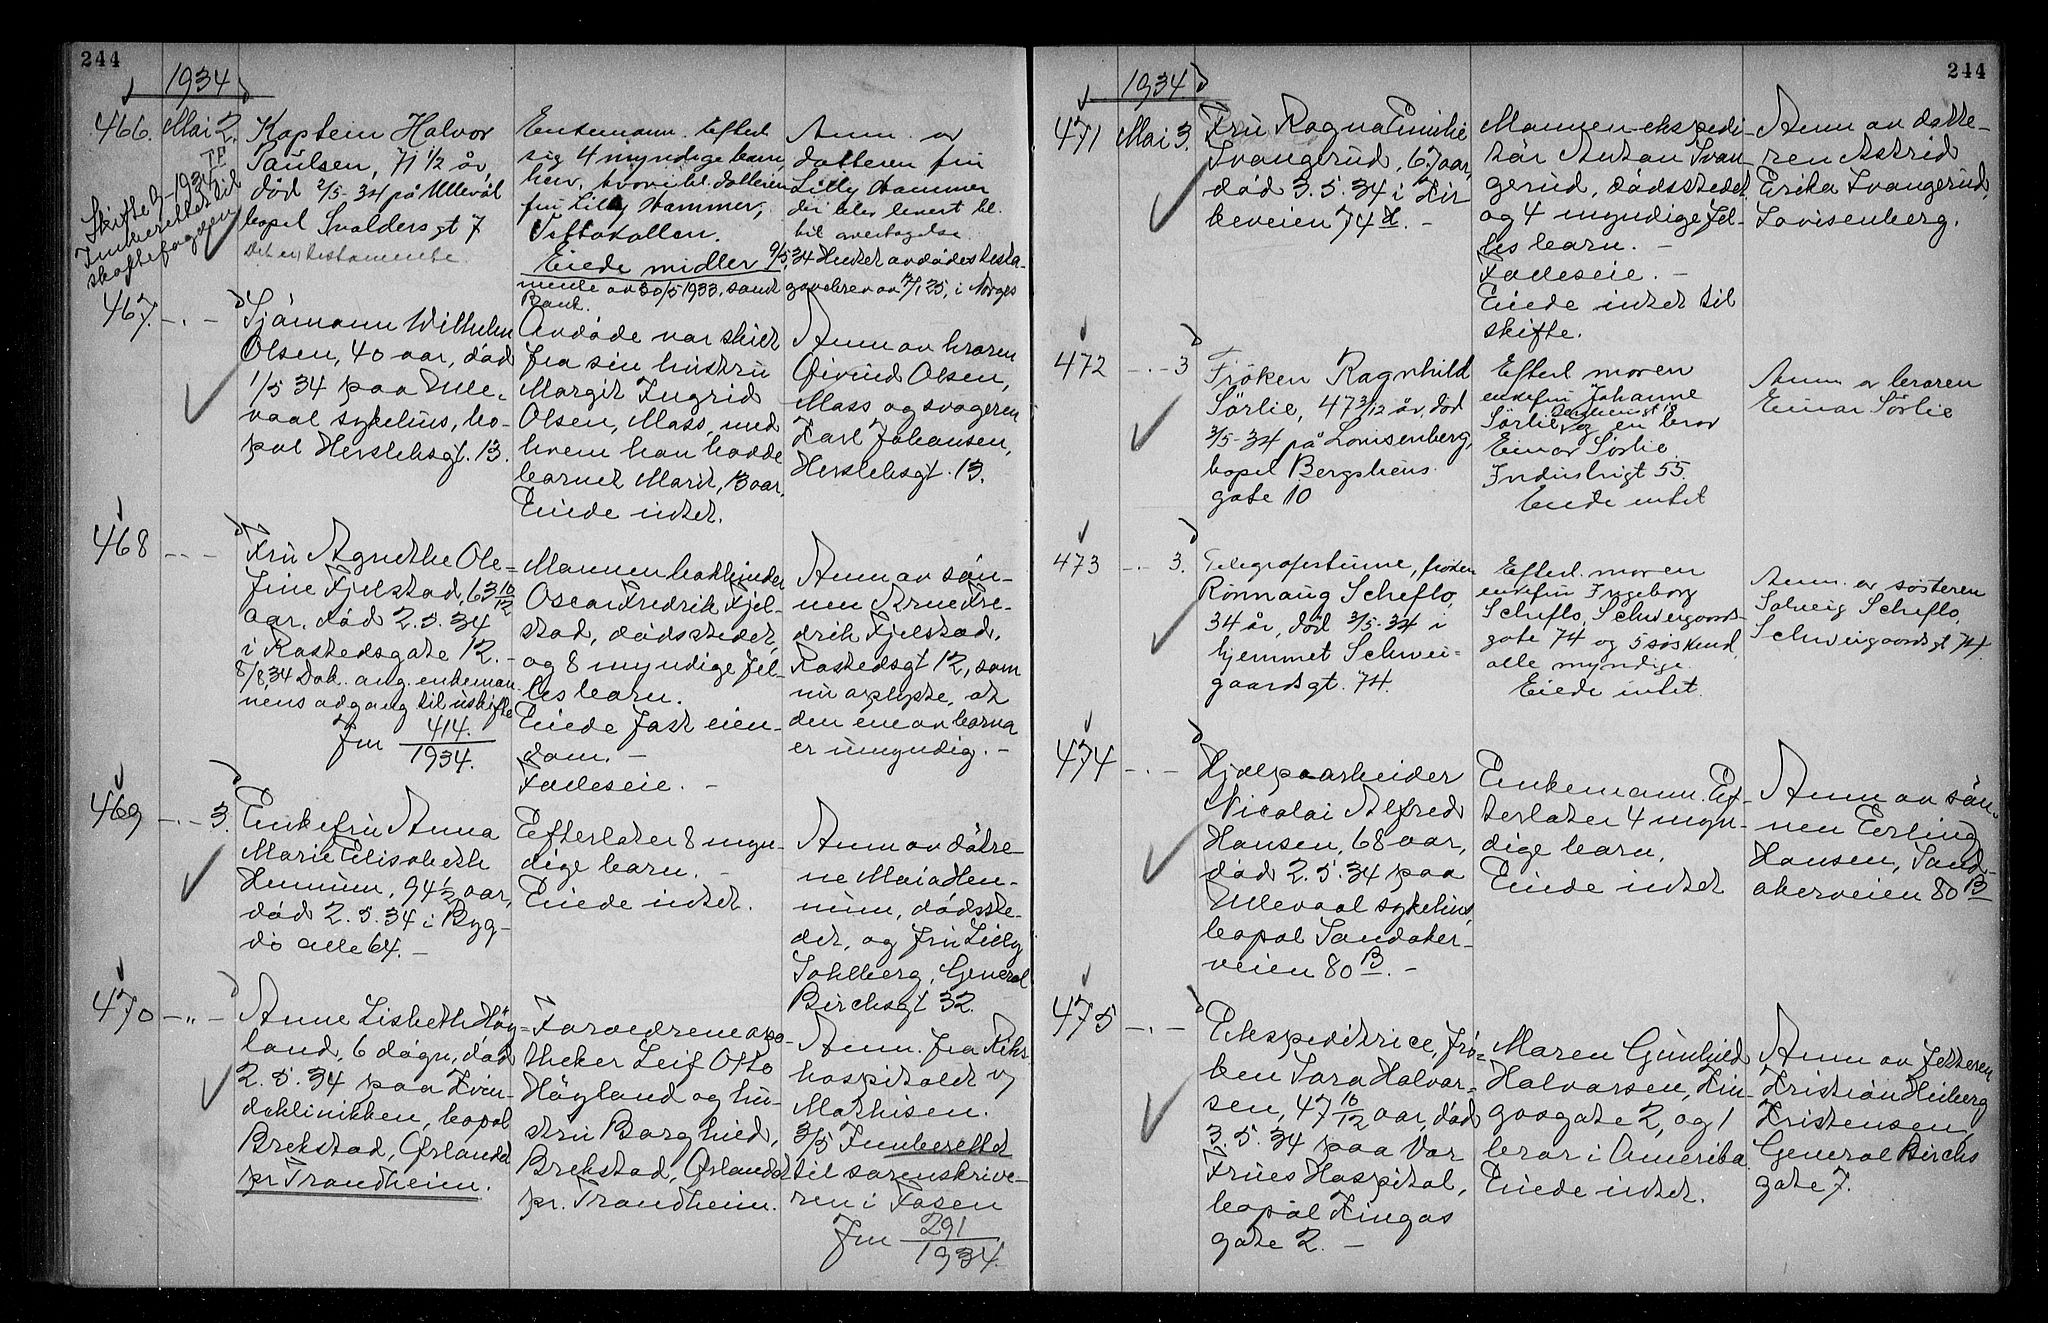 244
1934
466. Mai 2.
Kaptein Halvor
Paulsen, 71 1/2 år,
död 2/5-34 på Ullevål
bopel Svoldersgt 7
Det er testamente.
Skifte 1934
Innberettet til
skattefogden
Enkemann. Efterl.
sig 4 myndige barn
hvoribl. datteren
fru Lilly Hammer,
Vettakollen.
Eiede midler
Anm. av
datteren fru
Lilly Hammer
der blev levert bl.
til avertagelse.
9/5 34 Hentet avdødes testa-
mente av 30/5 1933, samt gavebrev av 25, i Norges
Bank.
467. -"-
Sjömann Wilhelm
Olsen, 40 aar, död
1/5 34 paa Ulle-
vaal sykehus, bo-
pæl Herslebsgt. 13.
Avdöde var skilt
fra sin hustru
Margit Ingrid
Olsen, Moss, med
hvem han hadde
barnet Marit, 13 aar.
Eiede intet.
Anm av broren
Öivind Olsen,
Moss og svogeren
Karl Johansen,
Herslebsgt. 13.
468 -"-
Fru Agnethe Ole-
fine Fjelstad, 63 10/12
aar, död 2.5.34
i Rostedsgate 12. -
8/8 34 Dok. ang. enkeman-
nens adgang til uskifte
Jnr 414.
1934.
Mannen bokbinder
Oscar Fredrik Fjel-
stad, dödsstedet,
og 8 myndige fel-
les barn.
Eiede fast eien-
dom. -
Fælleseie. -
Anm av sön-
nen Arne Fre-
drik Fjelstad,
Rostedsgt 12, som
nu oplyste, at
den ene av barna
er umyndig. -
469 -"- 3.
Enkefru Anna
Marie Elisabeth
Hennum, 94 1/2 aar,
död 2.5.34 i Byg-
dö alle 64. -
Efterlater 8 myn-
dige barn. -
Eiede intet.
Anm av dötre-
ne Maia Hen-
num, dödsste-
det, og fru Lilly
Sohlberg, General
Birchsgt 32.
470 -"-
Anne Lisbeth Höy-
land, 6 dögn, död
2.5.34 paa Kvin-
deklinikken, bopæl
Brekstad, Ørlandet
pr Trondheim.
Forældrene apo-
theker Leif Otto
Höyland og hu-
stru Borghild,
Brekstad, Ørlandet
pr. Trondheim.
Anm. fra Riks-
hospitalet v/
Mathisen.
3/5 Innberettet
til sorenskrive-
ren i Fosen
Jnr 291
1934.
244
1934.
471 Mai 3.
Fru Ragna Emilie
Svangerud, 67 aar,
död 3.5.34 i Kir-
keveien 74 H. -
Mannen ekspedi-
tör Anton Svan-
gerud, dödsstedet
og 4 myndige fel-
les barn. -
Fælleseie. -
Eiede intet til
skifte.
Anm av datte-
ren Astrid
Erika Svangerud,
Lovisenberg.
472 -"- 3
Fröken Ragnhild
Sörlie, 47 3/12 år, död
3/5-34 på Lovisenberg,
bopel Bergsliens
gate 10
Efterl moren
enkefru Johanne
Sörlie, og en bror
Einar Sörlie
Industrigt 55.
Eiede intet
Anm av broren
Einar Sörlie
473 -"- 3.
Telegrafistinne, fröken
Rönnaug Scheflo,
34 år, död 3/5-34 i
hjemmet Schwei-
gaardsgt. 74.
Efterl. moren
enkefru Ingeborg
Scheflo, Schweigaards-
gate 74 og 5 söskend,
alle myndige.
Eiede intet.
Anm. av søsteren
Solveig Scheflo,
Schweigaardsgt 74.
474 -"-
Hjælpearbeider
Nicolai Alfred
Hansen, 68 aar,
död 2.5.34 paa
Ullevaal sykehus,
bopæl Sandaker-
veien 80 B. -
Enkemann. Ef-
terlater 4 myn-
dige barn.
Eiede intet
Anm av sön-
nen Erling
Hansen, Sand-
akerveien 80 B
475 -"-
Ekspeditrice, frö-
ken Sara Halvor-
sen, 47 10/12 aar, död
3.5.34 paa Vor
Frues Hospital,
bopæl Kingos
gate 2. -
Maren Gunhild
Halvorsen, Kin-
gosgate 2, og 1
bror i Amerika
Eiede intet.
Anm av fetteren
Kristian Heiberg
Kristensen,
General Birchs
gate 7.